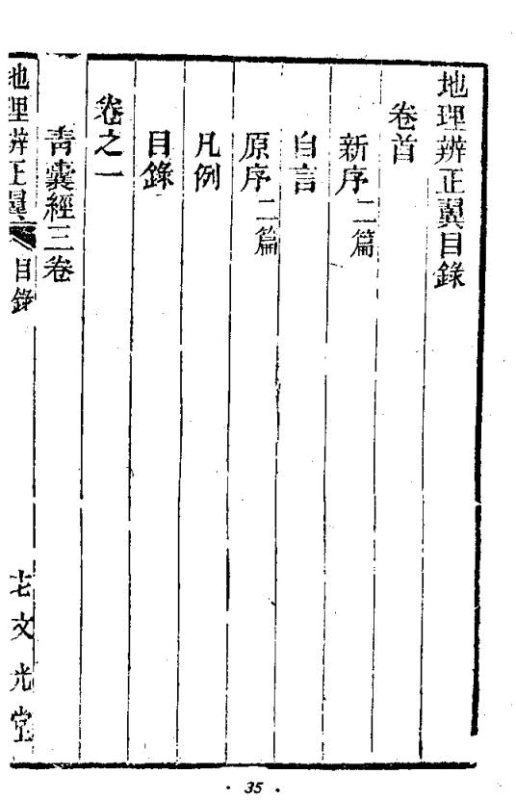 地理辨正翼目錄
卷首
新序二篇
自言
原序二篇
凡例
目錄
卷之一
青囊經三卷
地理辨正翼 目錄
文光堂
· 35 ·